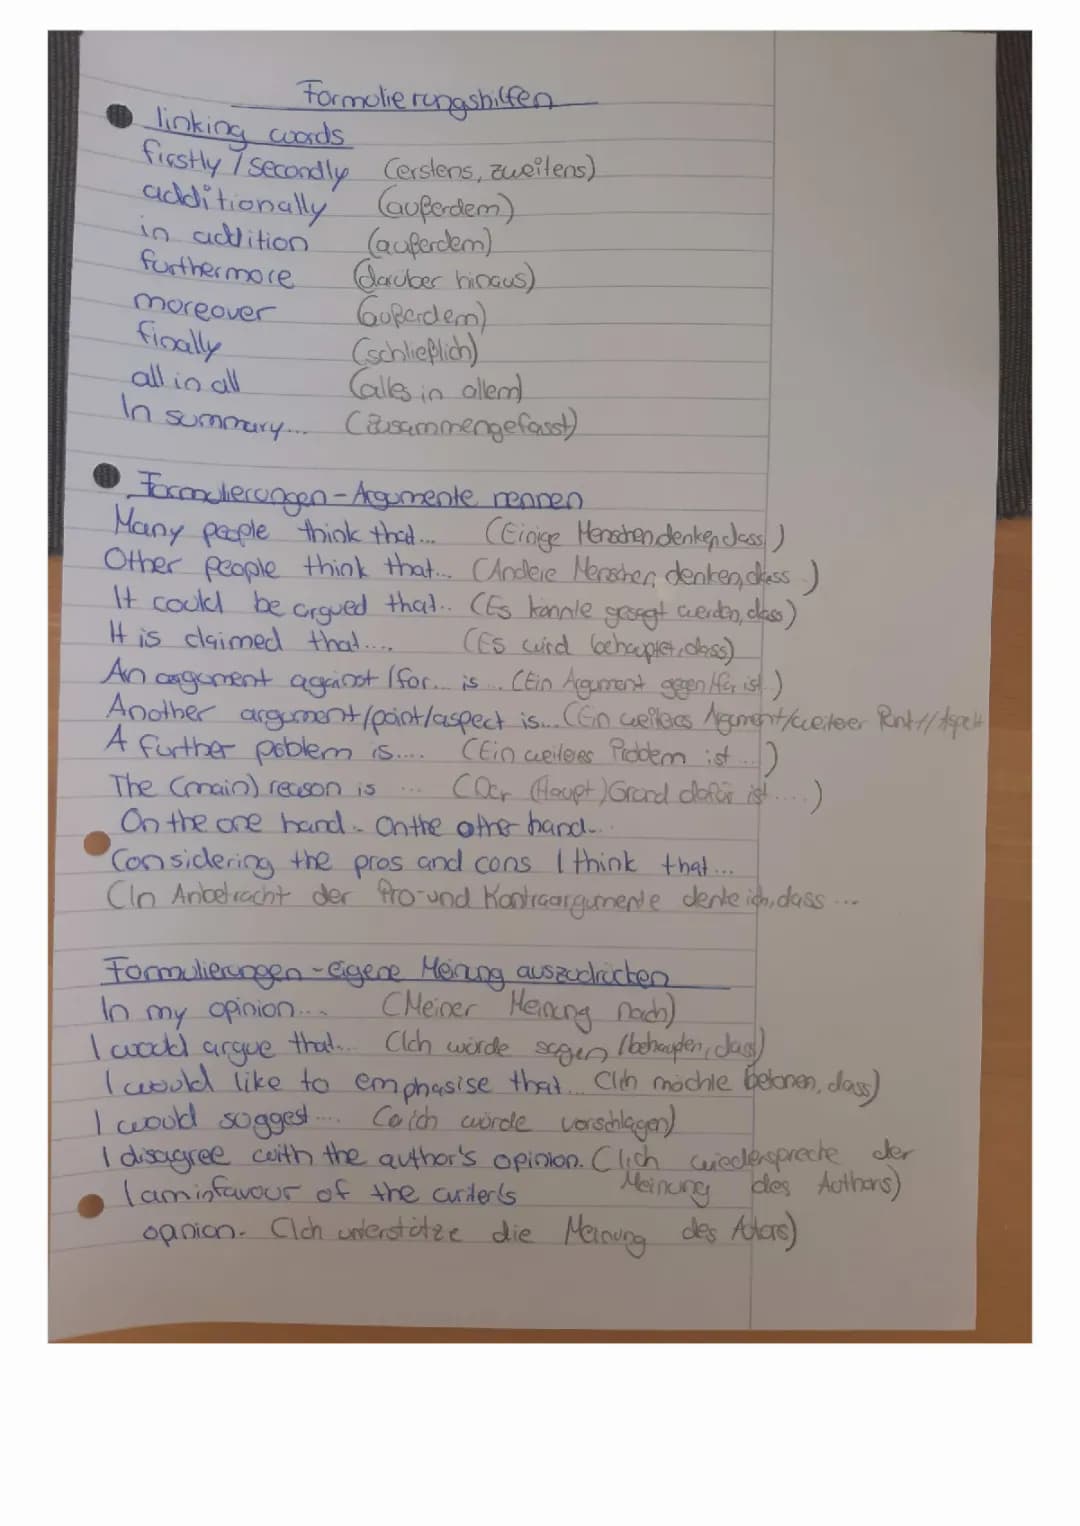 Formulierungshilfen
linking words
firstly / secondly (erstens, zweitens)
additionally (außerdem)
in addition (außerdem)
furthermore (darüber hinaus)
moreover (außerdem)
finally (schließlich)
all in all (alles in allem)
In summary... (Zusammengefasst)
Formulierungen - Argumente nennen
Many people think that... (Einige Menschen denken, dass)
Other people think that... (Andere Menschen denken, dass...)
It could be argued that.. (Es könnte gesagt werden, dass)
It is claimed that.... (Es wird behauptet, dass)
An argument against / for... is... (Ein Argument gegen/für ist..)
Another argument/point/aspect is... (Ein weiteres Argument/weiterer Punkt//Aspekt
A further poblem is.... (Ein weiteres Problem ist...)
The (main) reason is ... (Der (Haupt)Grund dafür ist....)
On the one hand - On the other hand...
Considering the pros and cons I think that...
(In Anbetracht der Pro-und Kontraargumente denke ich, dass ...
Formulierungen - eigene Meinung auszudrücken
In my opinion... (Meiner Meinung nach)
I would argue that... (Ich würde sagen /behaupten, dass)
I would like to emphasise that... (Ich möchte betonen, dass)
I would suggest.... (Ich würde vorschlagen)
I disagree with the author's opinion. (Ich wiederspreche der
Meinung des Authors)
I am infavour of the writer's
opinion. (Ich unterstütze die Meinung des Autors)